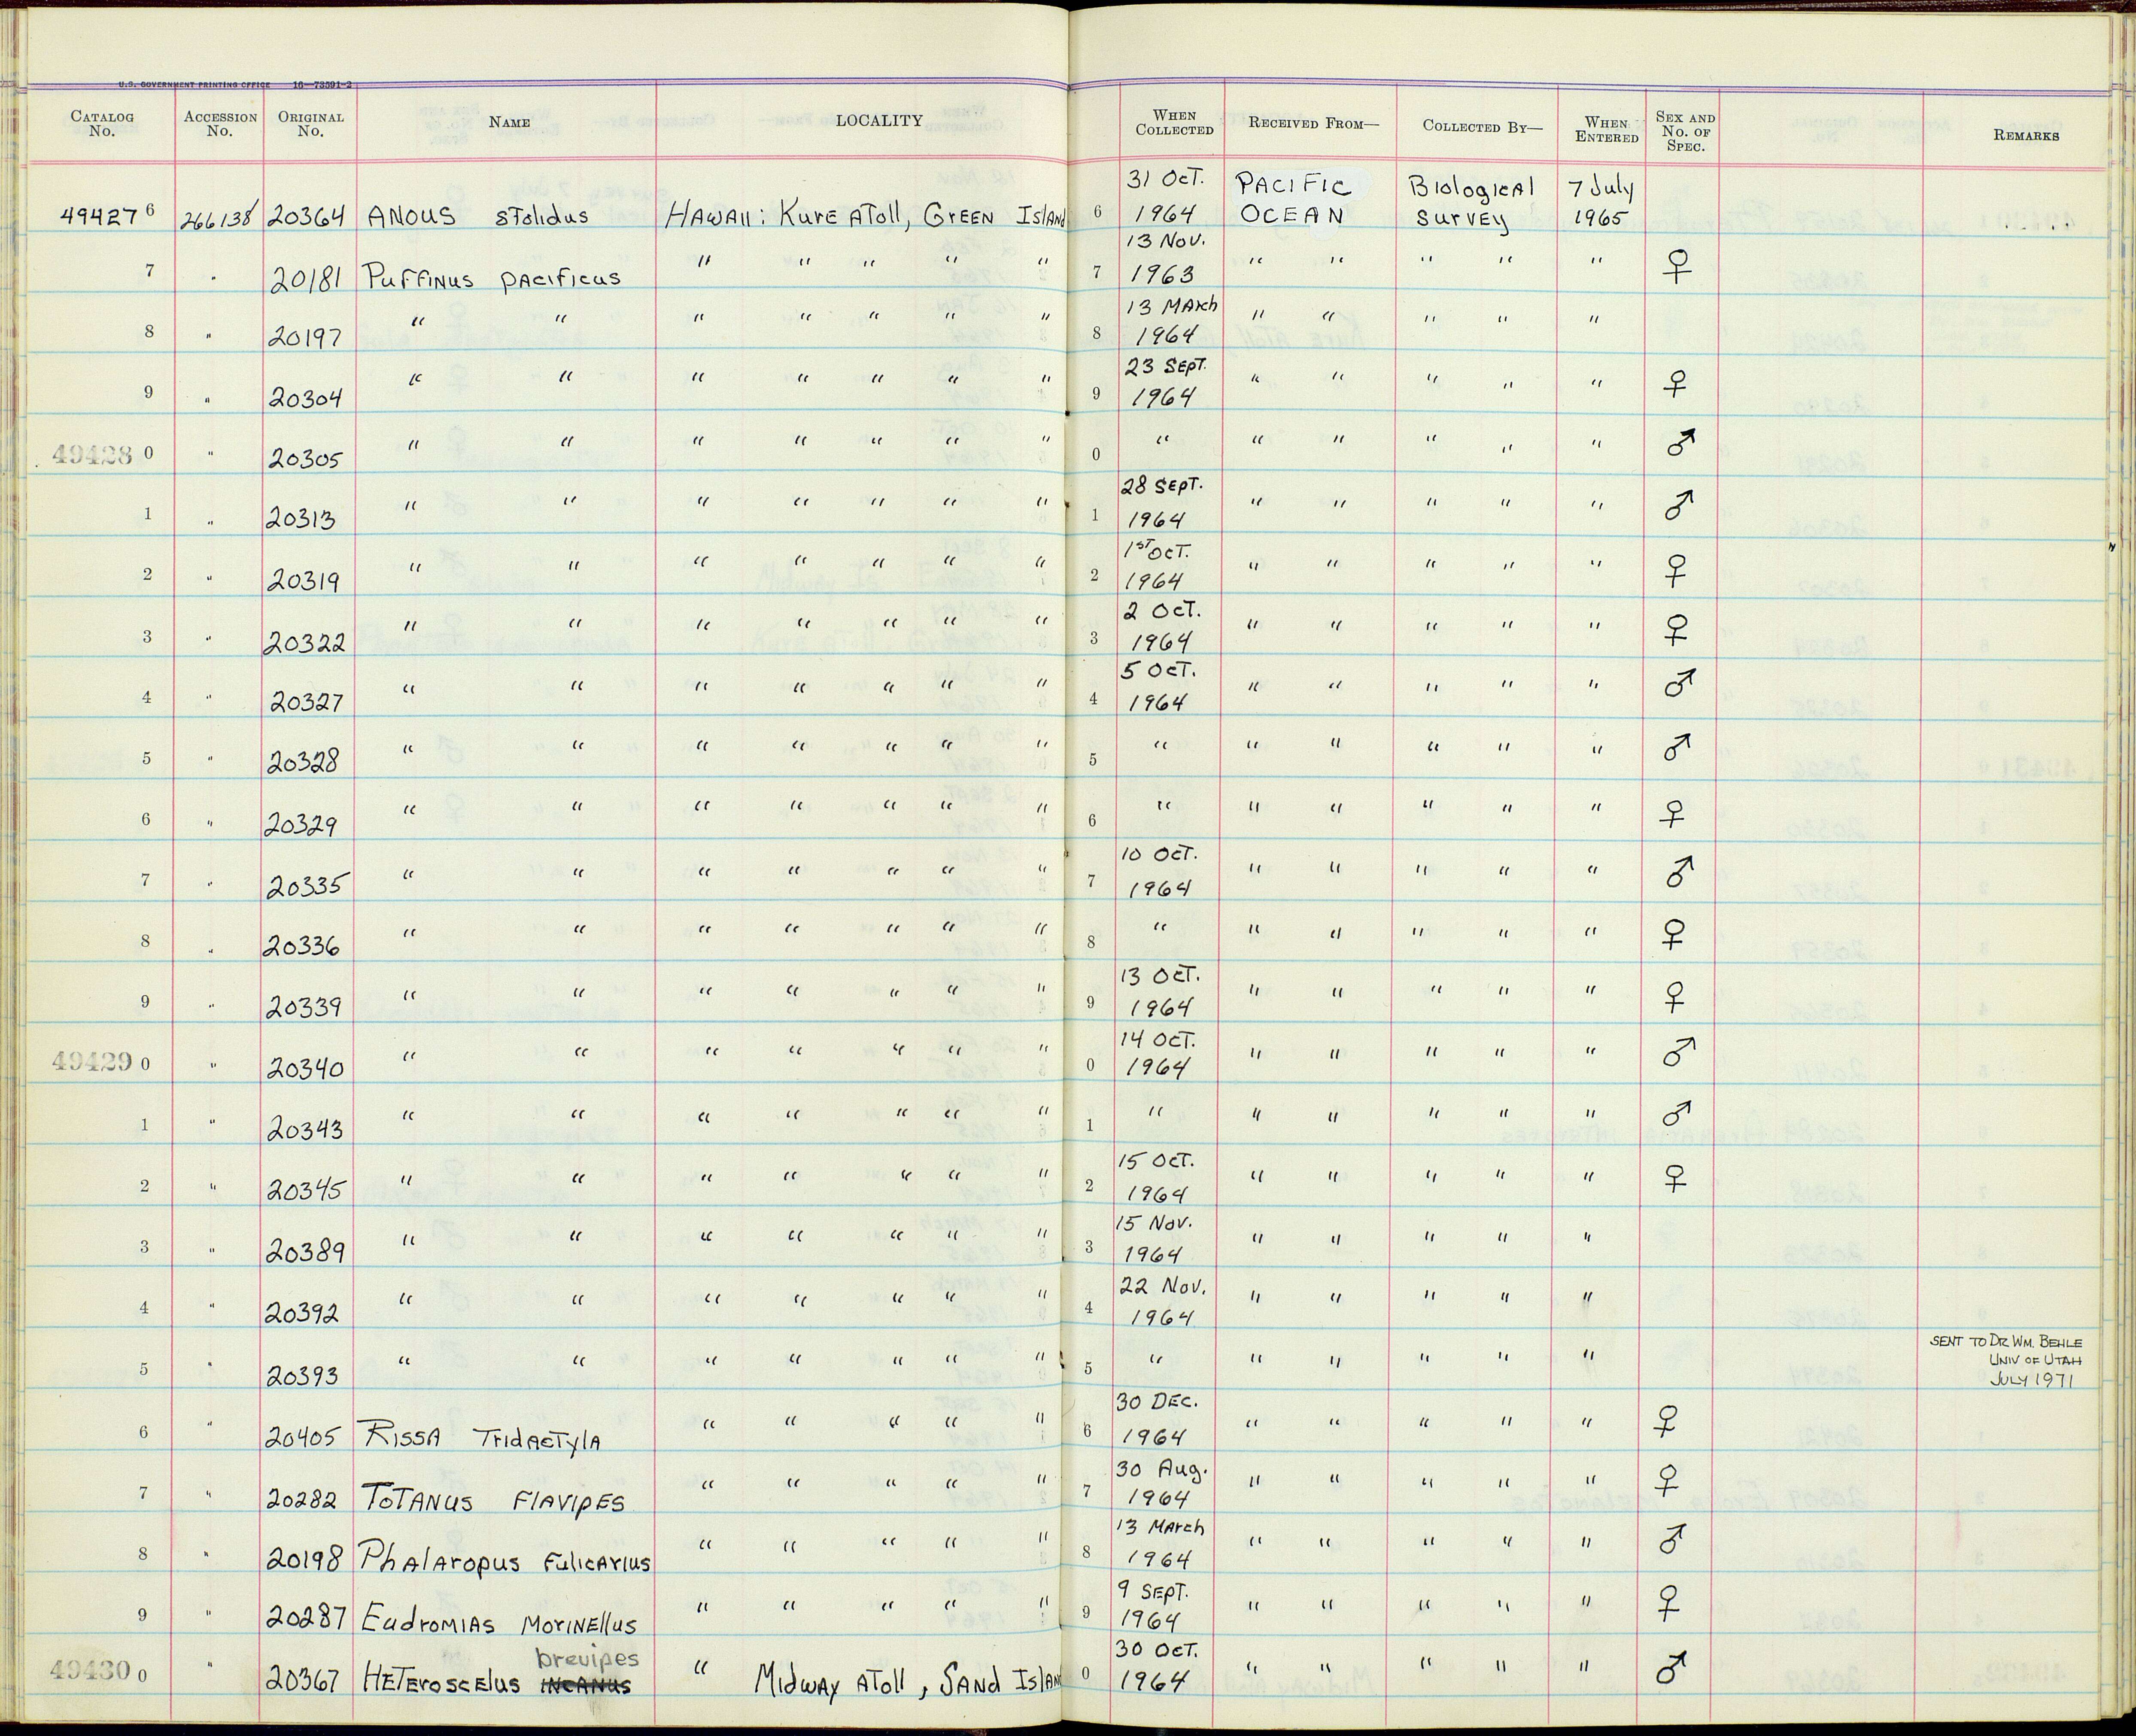 U.S. GOVERNMENT PRINTING OFFICE 16—73591-2
CATALOG No. ACCESSION No. ORIGINAL No. NAME LOCALITY WHEN COLLECTED RECEIVED FROM— COLLECTED BY— WHEN ENTERED SEX AND No. OF SPEC. REMARKS
494276 266138 20364 Anous stolidus Hawaii: Kure Atoll, Green Island 6 31 Oct. 1964 PACIFIC OCEAN Biological Survey 7 July 1965
7 " 20181 Puffinus pacificus " " " " " 7 13 Nov. 1963 " " " " " ♀
8 " 20197 " " " " " " " 8 13 March 1964 " " " " "
9 " 20304 " " " " " " " 9 23 Sept. 1964 " " " " " ♀
494280 " 20305 " " " " " " " 0 " " " " " " ♂
1 " 20313 " " " " " " " 1 28 Sept. 1964 " " " " " ♂
2 " 20319 " " " " " " " 2 1st Oct. 1964 " " " " " ♀
3 " 20322 " " " " " " " 3 2 Oct. 1964 " " " " " ♀
4 " 20327 " " " " " " " 4 5 Oct. 1964 " " " " " ♂
5 " 20328 " " " " " " " 5 " " " " " " ♂
6 " 20329 " " " " " " " 6 " " " " " " ♀
7 " 20335 " " " " " " " 7 10 Oct. 1964 " " " " " ♂
8 " 20336 " " " " " " " 8 " " " " " " ♀
9 " 20339 " " " " " " " 9 13 Oct. 1964 " " " " " ♀
494290 " 20340 " " " " " " " 0 14 Oct. 1964 " " " " " ♂
1 " 20343 " " " " " " " 1 " " " " " " ♂
2 " 20345 " " " " " " " 2 15 Oct. 1964 " " " " " ♀
3 " 20389 " " " " " " " 3 15 Nov. 1964 " " " " "
4 " 20392 " " " " " " " 4 22 Nov. 1964 " " " " "
5 " 20393 " " " " " " " 5 " " " " " " SENT TO DR WM. BEHLE UNIV OF UTAH JULY 1971
6 " 20405 Rissa Tridactyla " " " " " 6 30 Dec. 1964 " " " " " ♀
7 " 20282 Totanus flavipes " " " " " 7 30 Aug. 1964 " " " " " ♀
8 " 20198 Phalaropus fulicarius " " " " " 8 13 March 1964 " " " " " ♂
9 " 20287 Eudromias morinellus " " " " " 9 9 Sept. 1964 " " " " " ♀
494300 " 20367 Heteroscelus incanus brevipes " Midway Atoll, Sand Islan 0 30 Oct. 1964 " " " " " ♂